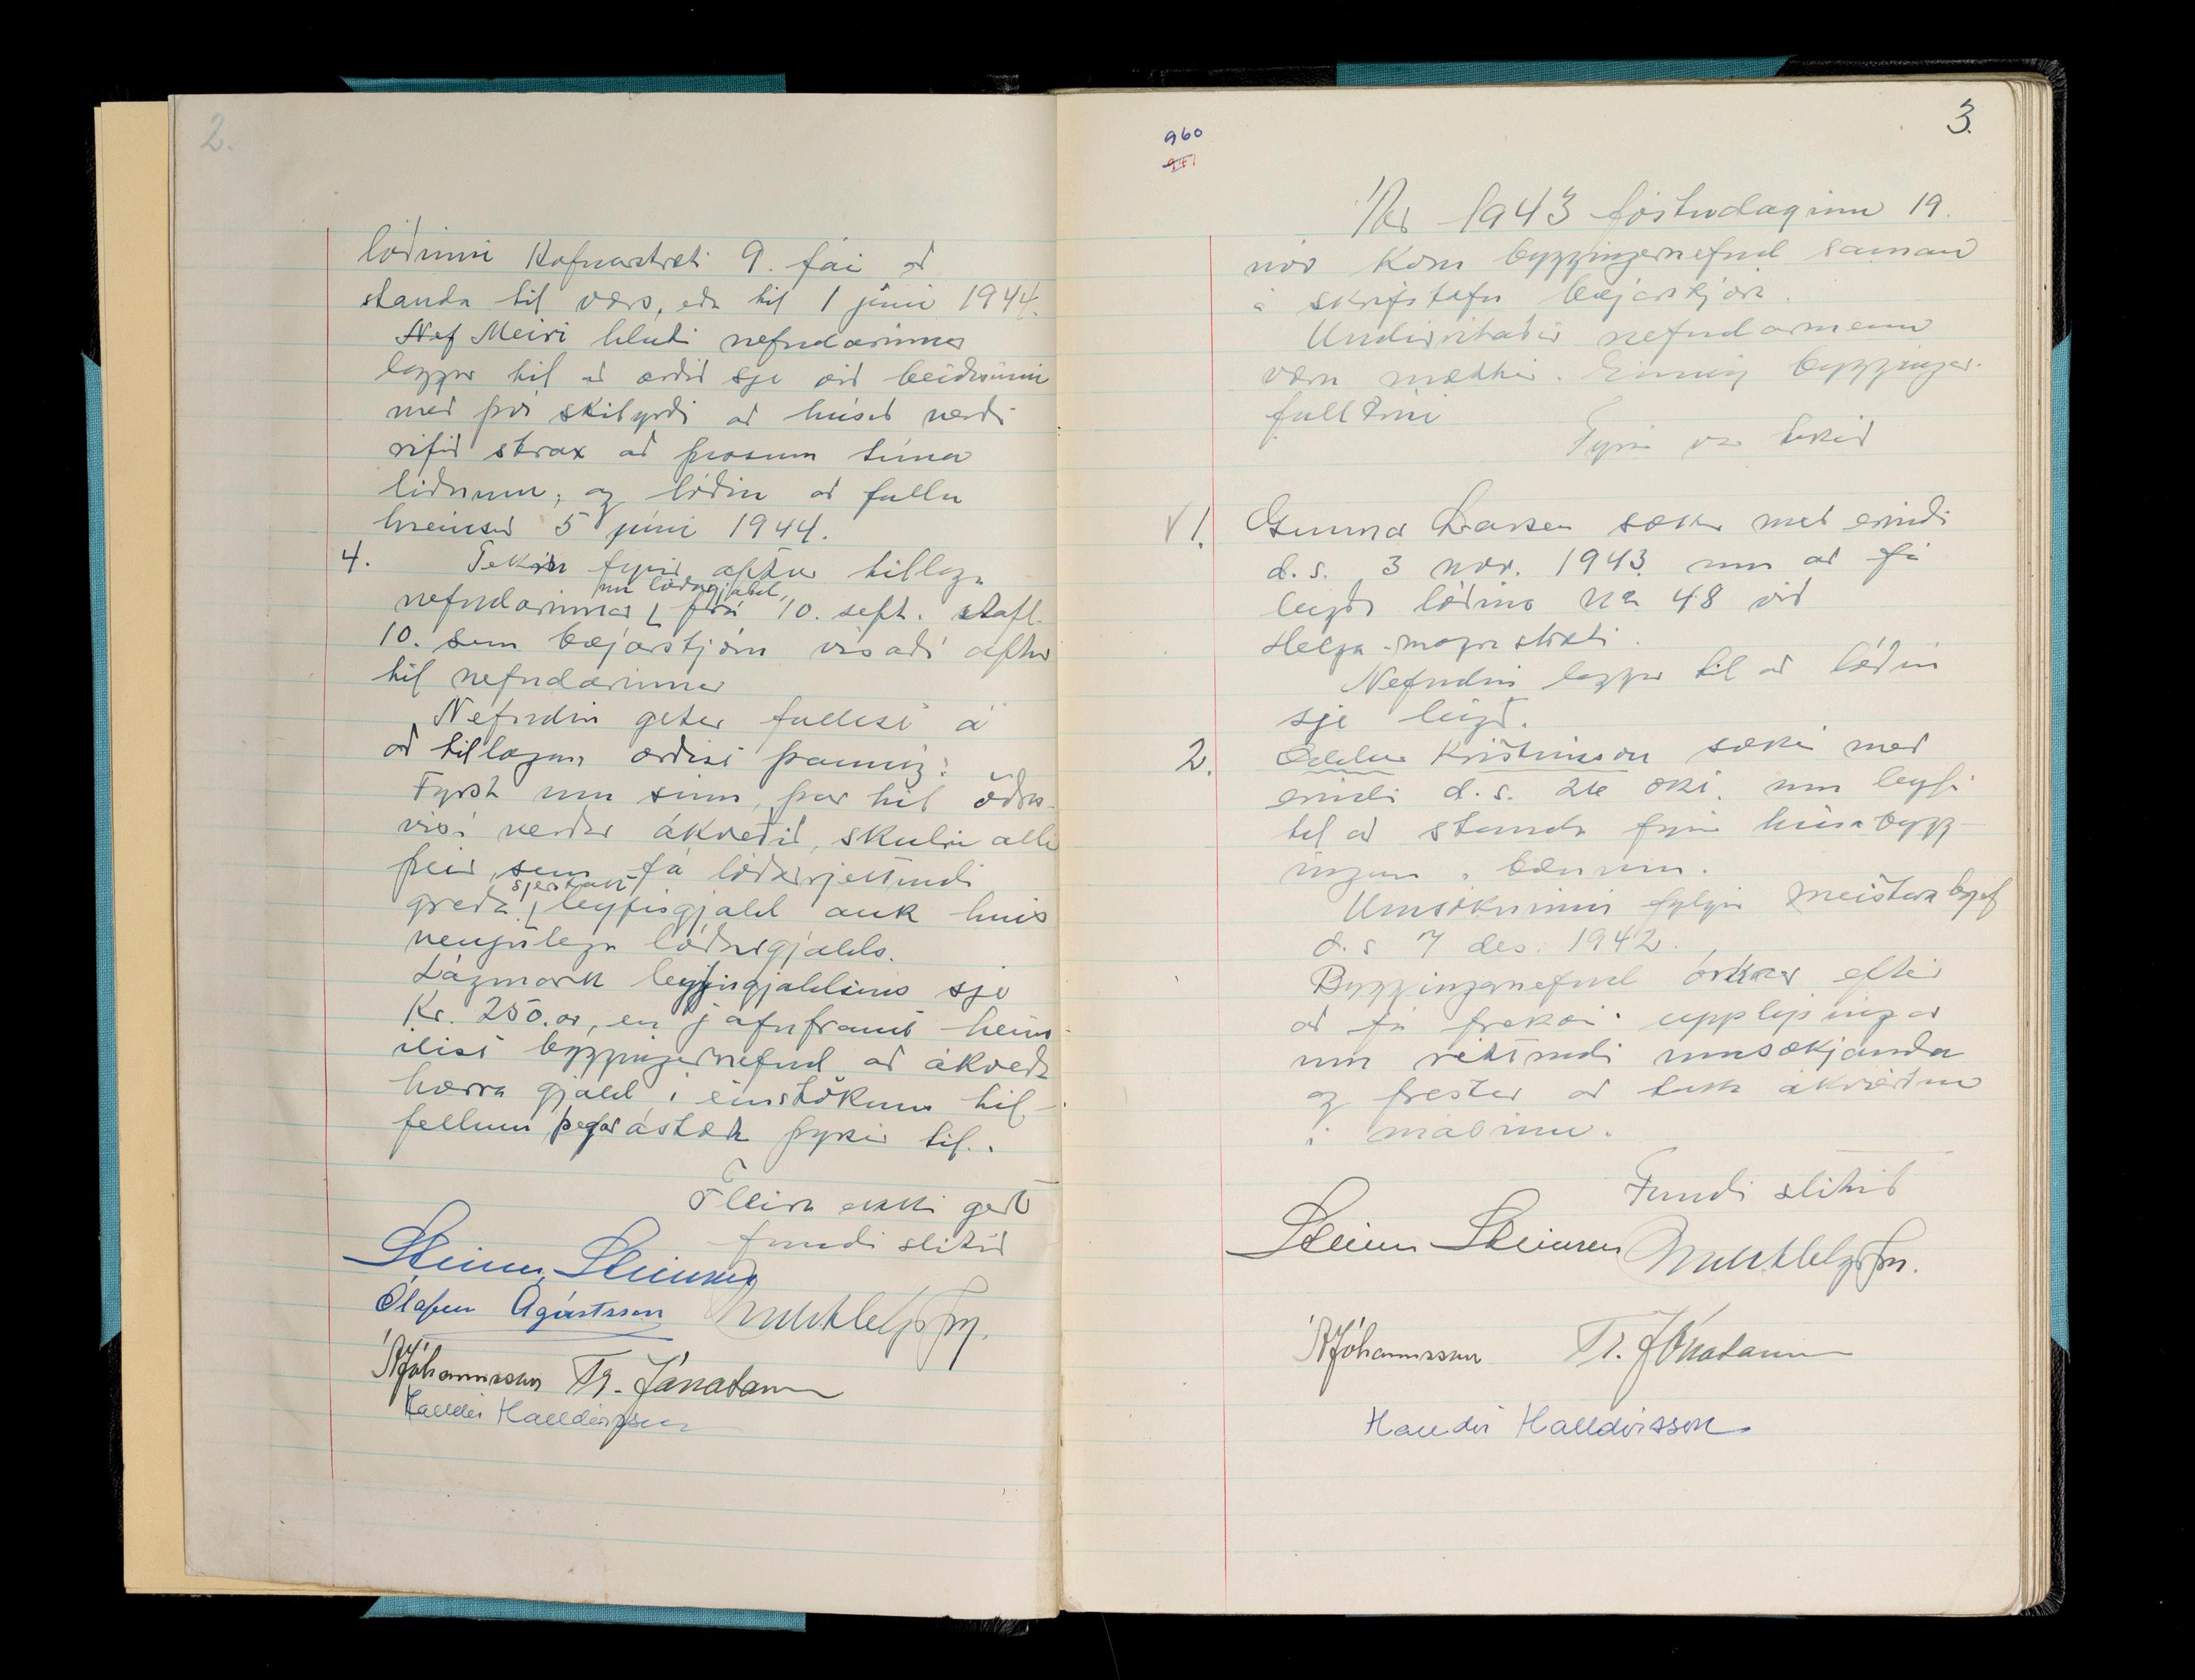 2.
lóðinni Hafnarstræti 9. fái að
standa til vors, eða til 1 júní 1944.
Nef Meiri hluti nefndarinnar
leggur til að orðið sje við beiðninni
með því skilyrði að húsið verði
rifið strax að þessum tíma
liðnum, og lóðin að fullu
hreinsuð 5 júní 1944.
4. Tekin fyrir aftur tillaga
um lóðagjald,
nefndarinnar frá 10. sept. stafl.
10. sem bæjarstjórn vísaði aftur
til nefndarinnar
Nefndin getur fallist á
að tillagan orðist þannig:
Fyrst um sinn, þar til öðru-
vísi verður ákveðið, skulu allir
þeir, sem fá lóðarrjettindi
sjerstakt
greiða leyfisgjald auk hins
venjulega lóðargjalds.
Lágmark leyfisgjaldsins sje
Kr. 250.oo, en jafnframt heim-
ilist byggingarnefnd að ákveða
hærra gjald í einstökum til-
fellum þegar ástæða þykir til.
Fleira ekki gert
fundi slitið
Steinn Steinsen
Ólafur Ágústsson
Jóhannsson Tr. Jónatansson
Halldór Halldórsson
3.
960
941
Ár 1943 föstudaginn 19.
nóv kom byggingarnefnd saman
á skrifstofu bæjarstjóra.
Undirritaðir nefndarmenn
voru mættir. Einnig byggingar-
fulltrúi
Fyrir var tekið
V 1. Gunnar Larsen sækir með erindi
d.s. 3 nóv. 1943 um að fá
leigða lóðina No 48 við
Helga-magra stræti.
Nefndin leggur til að lóðin
sje leigð.
2. Oddur Kristinsson sækir með
erindi d.s. 26 okt. um leyfi
til að standa fyrir húsabygg-
ingum í bænum.
Umsókninni fylgir meistarabrjef
d.s 7 des. 1942.
Byggingarnefnd óskar eftir
að fá frekari upplýsingar
um rettindi umsækjanda
og frestar að taka ákvörðun
í málinu.
Fundi slitið
Steinn Steinsen
Jóhannsson Tr. Jónatansson
Halldór Halldórsson